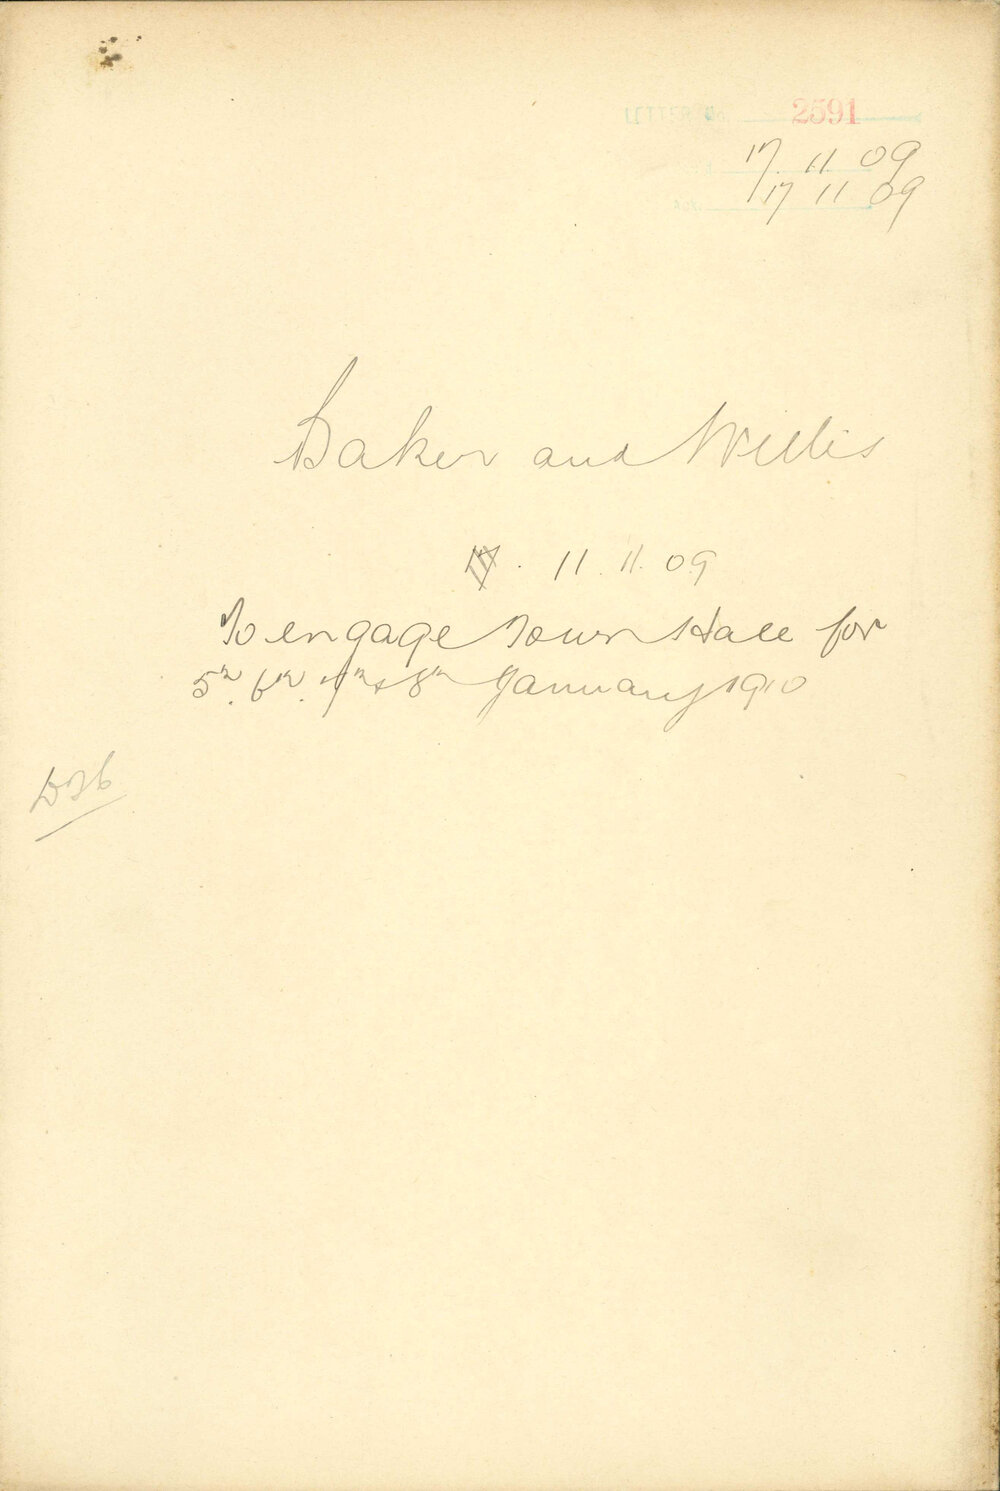 LETTER No. 2591
17. 11. 09
Ack. 17 11 09
Baker and Willis
11. 11. 09
To engage Town Hall for
5th. 6th. 7th & 8th January 1910